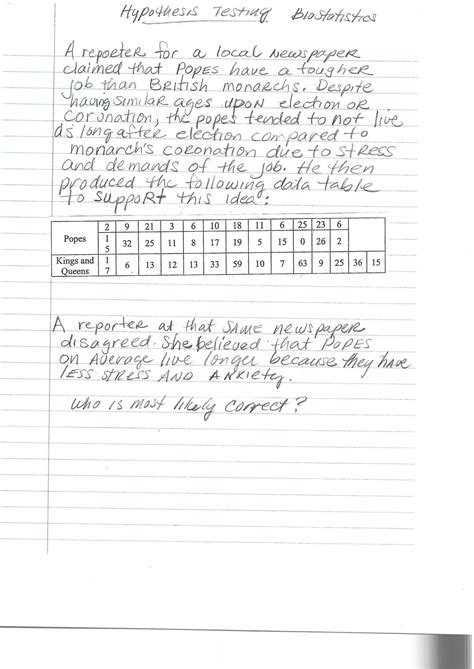 Hypothesis Testing Biostatistics
A repoeter for a local Newspaper
claimed that Popes have a tougher
job than British monarchs. Despite
having similar ages upon election or
coronation, the popes tended to not live
as long after election compared to
monarch's coronation due to stress
and demands of the job. He then
produced the following data table
to support this idea:
Popes 2 9 21 3 6 10 18 11 6 25 23 6
15 32 25 11 8 17 19 5 15 0 26 2
Kings and Queens 17 6 13 12 13 33 59 10 7 63 9 25 36 15
A reporter at that same newspaper
disagreed. She believed that Popes
on average live longer because they have
less stress and anxiety.
Who is most likely correct?